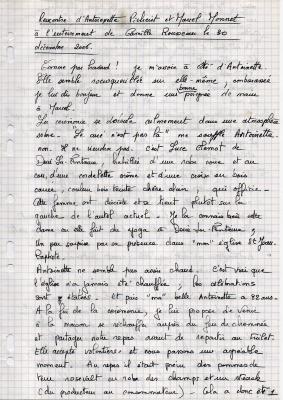 Rencontre d'Antoinette et Marcel Monnet
à l'enterrement de Camille le 30
décembre 2006.
Comme par hasard ! je m'assois à côté d'Antoinette.
Elle semble recroquevillée sur elle-même, embarrassée
je lui dis bonjour et donne une bonne poignée de main
à Marcel.
La cérémonie se déroule calmement dans une atmosphère
sobre. Le curé n'est pas là" me souffle Antoinette
non. Il ne viendra pas. C'est Luce de
habillée d'une robe et au
cou, d'une cordelette et d'une croix en bois
couleur bois teinté chêne clair, qui officie.
Cette femme est discrète et se tient plutôt sur la
gauche de l'autel actuel. Je la connais bien cette
dame car elle fait du yoga à
Un peu surprise par sa présence dans "mon" église St Jean-
Baptiste.
Antoinette ne semble pas avoir chaud. C'est vrai que
l'église n'a jamais été chauffée, les célébrations
sont . Et puis "ma" belle Antoinette a 82 ans.
A la fin de la cérémonie, je lui propose de venir
à la maison se réchauffer auprès du feu de cheminée
et partager notre repas avant de repartir au Triolet.
Elle accepte volontiers et nous passons un agréable
moment. Au repas il était prévu des pommes de
terre au robe des champs et un steack
(du producteur au consommateur). Cela a donc été